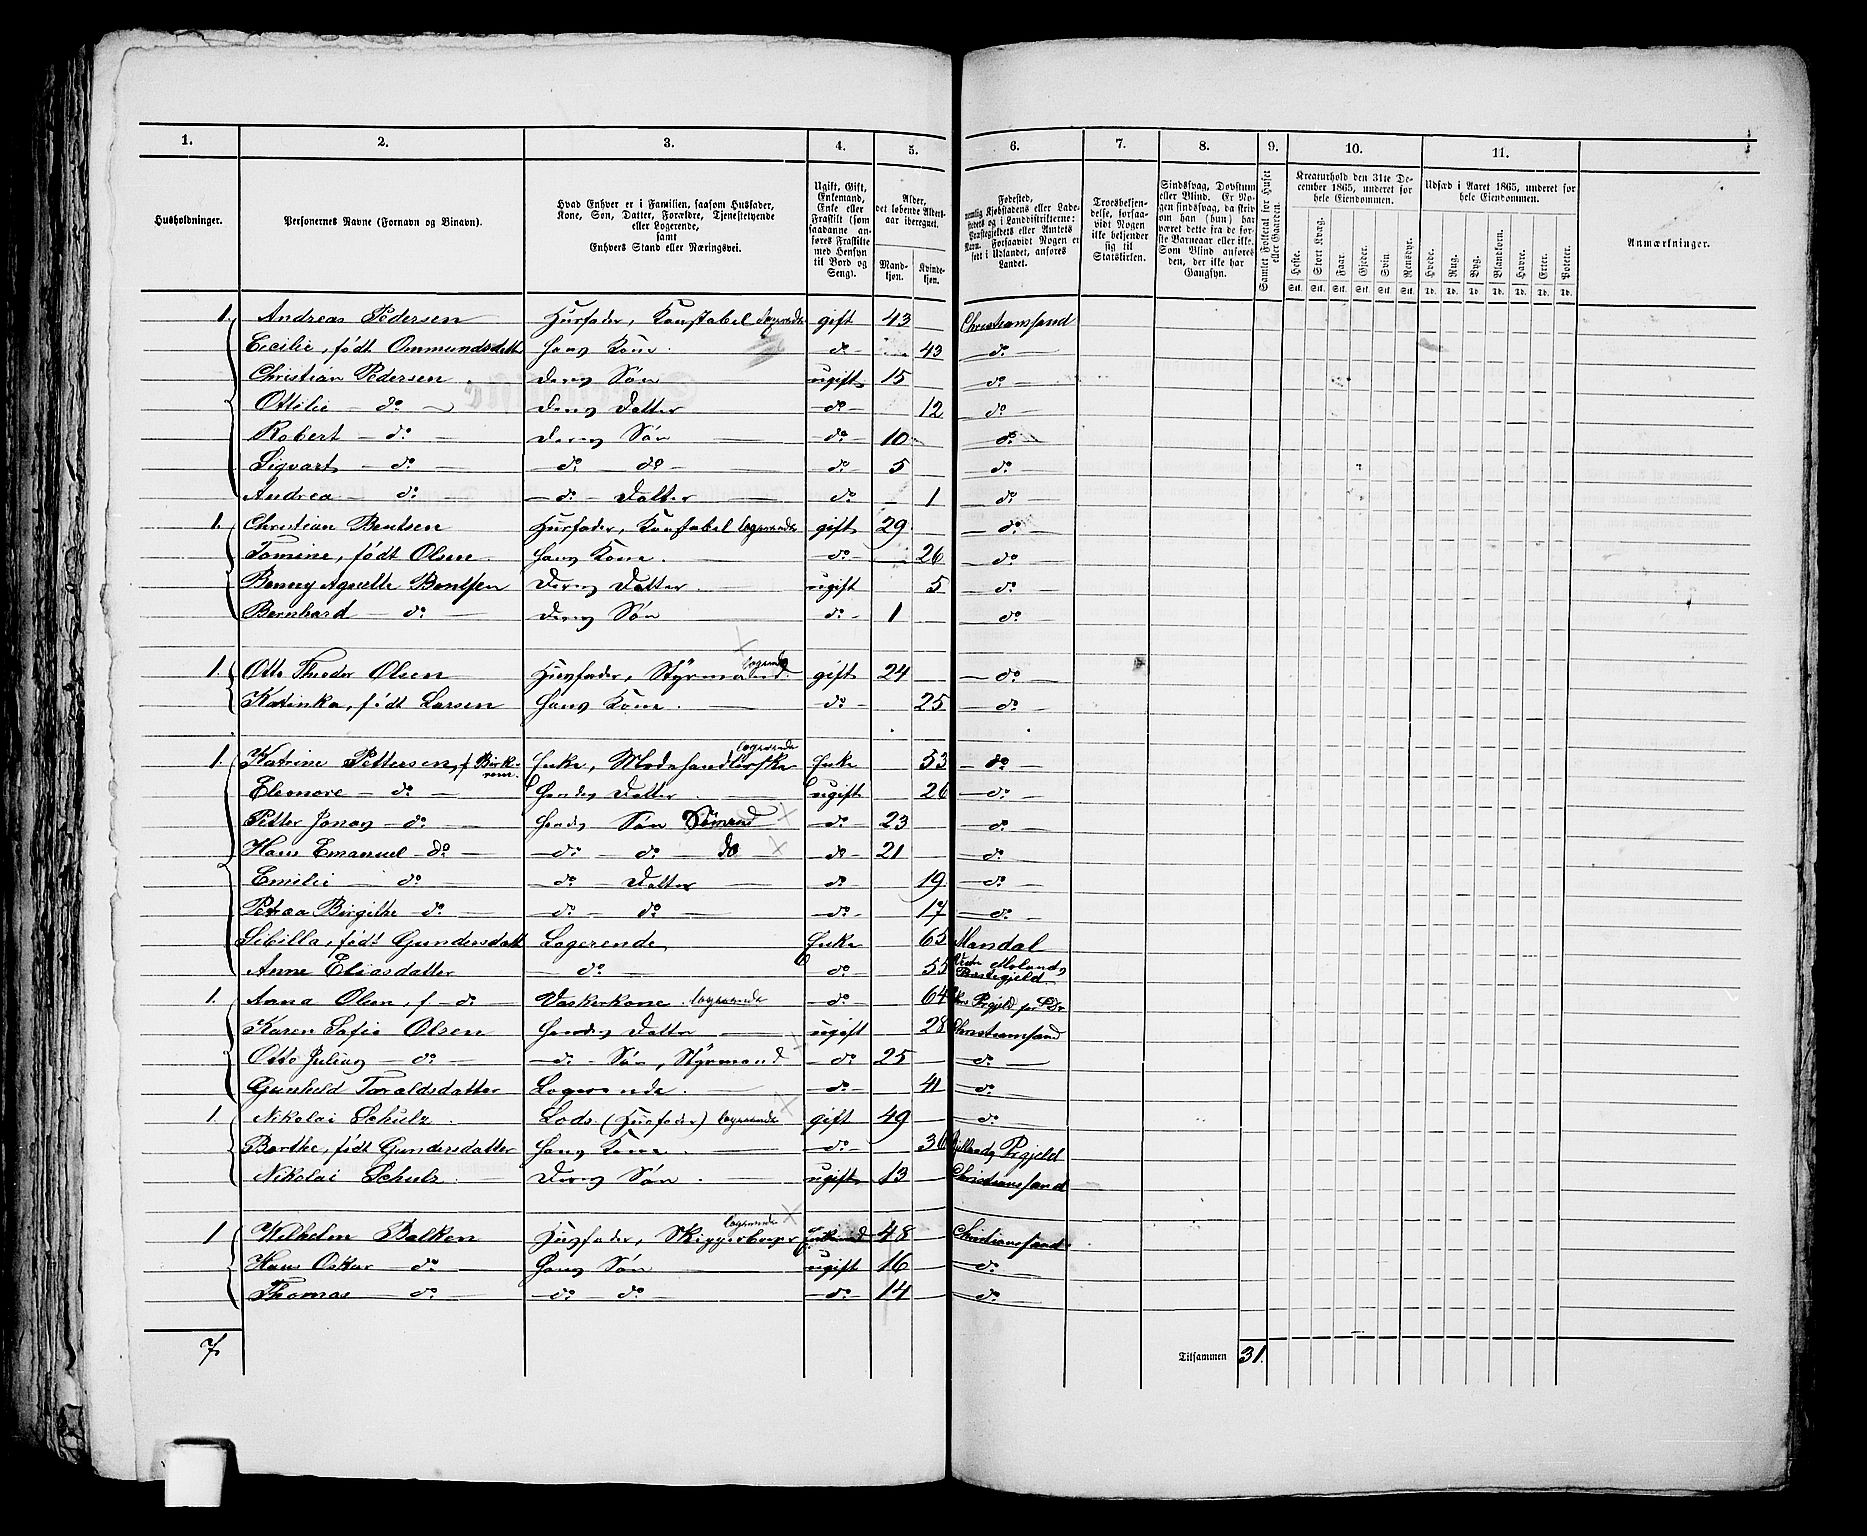 1. 2. 3. 4. 5. 6. 7. 8. 9. 10. 11.
Husholdninger.
Personernes Navne (Fornavn og Binavn).
Hvad Enhver er i Familien, saasom Husfader, Kone, Søn, Datter, Forældre, Tjenestetyende eller Logerende, samt Enhvers Stand eller Næringsvei.
Ugift, Gift, Enkemand, Enke eller Fraskilt (saadanne anføres Fraskilte med Hensyn til Bord og Seng).
Alder, det løbende Alders-aar iberegnet. Mandkjøn. Kvindekjøn.
Fødested, nemlig Kjøbstadens eller Ladestedets og i Landdistrikterne: Præstegjeldets eller Amtets Navn. Forsaavidt Nogen er født i Udlandet, anføres Landet.
Troesbekjendelse, forsaavidt Nogen ikke bekjender sig til Statskirken.
Sindssvag, Døvstum eller Blind. Er Nogen sindssvag, da skrives om han (hun) har været dette fra de første Barneaar eller ikke. Som Blind anføres den, der ikke har Gangsyn.
Samlet Folketal for Huset eller Gaarden.
Kreaturhold den 31te December 1865, underet for hele Eiendommen.
Heste. Stort Kvæg. Faar. Gjeder. Svin. Rensdyr.
Stk. Stk. Stk. Stk. Stk. Stk.
Udsæd i Aaret 1865, underet for hele Eiendommen.
Hvede. Rug. Byg. Blandkorn. Havre. Erter. Poteter.
Td. Td. Td. Td. Td. Td. Td.
Anmærkninger.
1. Andreas Pedersen Husfader, Konstabel logerende gift 43 Christianssand
Cecilie, født Ommundsdatter Hans Kone. do 43 do
Christian Pedersen Deres Søn ugift 15 do
Ottilie do Deres Datter do 12 do
Robert do Deres Søn do 10 do
Sigvart do do do do 5 do
Andrea do do Datter do 1 do
1. Christian Bentsen Husfader, Konstabel logerende gift 29 do
Tomine, født Olsen Hans Kone. do 26 do
Benny Bentsen Deres Datter ugift 5 do
Bernhard do Deres Søn do 1 do
1. Otto Theodor Olsen Husfader, Styrmand logerende gift 24 do
Katinka, født Larsen Hans Kone. do 25 do
1. Katrine Pettersen, f. Enke, Modehandlerske logerende Enke 53 do
Eleonore do Hendes Datter ugift 26 do
Petter Jonas do Hendes Søn Sömand do 23 do
Hans Emanuel do do do do do 21 do
Emilie do do Datter do 19 do
Petrea Birgithe do do do do 17 do
Sibilla, født Gundersdatt Logerende Enke 63 Mandal
Anne Eliasdatter do do 55 Vestre Molands Præstegjeld
1. Anna Olsen, f. do Vaskerkone logerende do 64
Karen Sofie Olsen Hendes Datter ugift 28 Christianssand
Otto Julius do do Søn, Styrmand do 25 do
Gunhild Taraldsdatter Logerende. do 41 do
1. Nikolai Schulz Lods (Husfader) logerende gift 49 do
Berthe, født Gundersdatter Hans Kone do 36 Prgjeld
Nikolai Schulz Deres Søn ugift 13 Christianssand
1 Wilhelm Balken Husfader, logerende Enkemand 48 Christianssand
Hans Oskar do Hans Søn ugift 16 do
Thomas do do do do 14 do
7. Tilsammen 31.